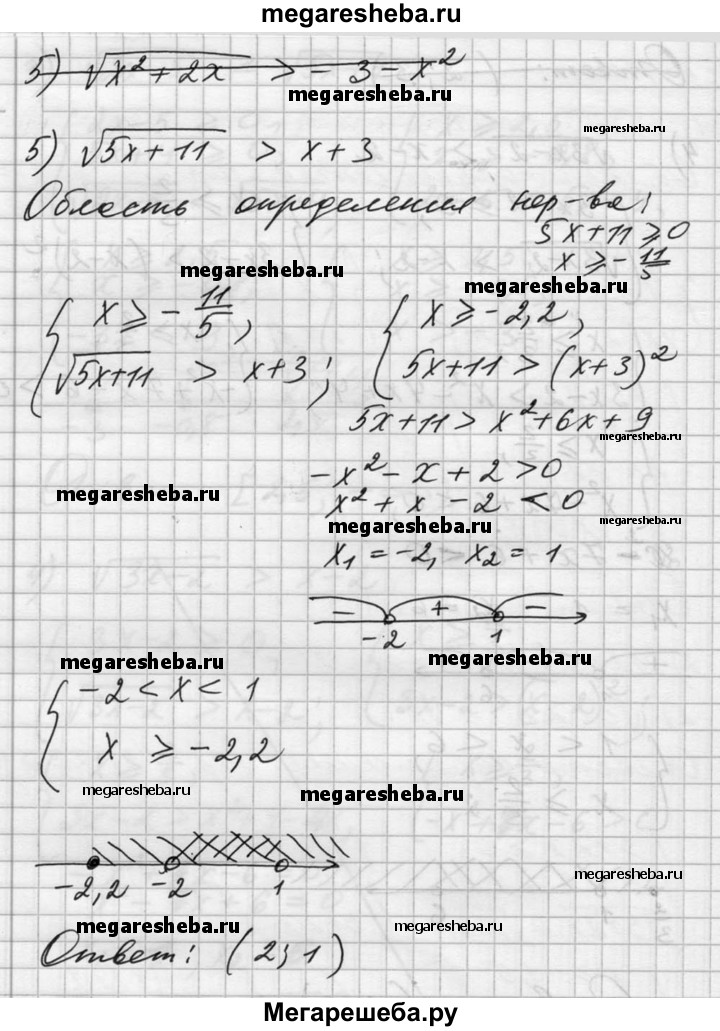 megaresheba.ru
5) √(x² + 2x) > - 3 - x²
megaresheba.ru
megaresheba.ru
5) √(5x + 11) > x + 3
Область определения нер-ва:
5x + 11 ⩾ 0
megaresheba.ru x ⩾ - 11/5
megaresheba.ru
{ x ⩾ - 11/5, { x ⩾ -2,2,
√(5x+11) > x+3; 5x+11 > (x+3)²
5x+11 > x²+6x+9
megaresheba.ru
-x² - x + 2 > 0
megaresheba.ru
x² + x - 2 < 0
megaresheba.ru
x₁ = -2, x₂ = 1
− + −
-2 1
megaresheba.ru megaresheba.ru
{ -2 < x < 1
x ⩾ -2,2
megaresheba.ru megaresheba.ru
megaresheba.ru
-2,2 -2 1
megaresheba.ru megaresheba.ru
Ответ: (2; 1)
Мегарешеба.ру